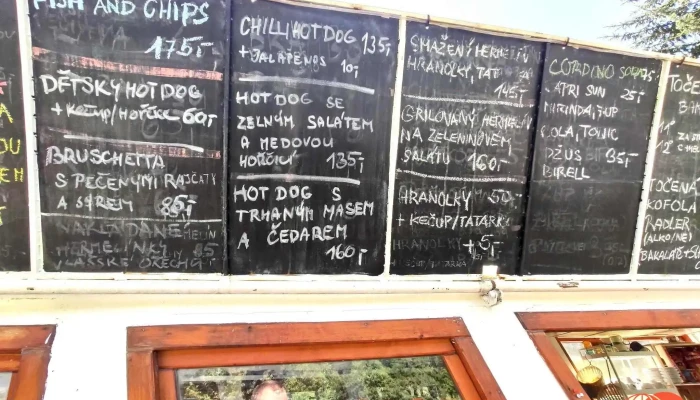 FISH AND CHIPS
175,-
DĚTSKÝ HOTDOG
+ KEČUP/HOŘČICE 60,-
BRUSCHETTA
S PEČENÝMI RAJČATY
A SÝREM 85,-
NAKLÁDANÉ
HERMELÍNKY 85
CHILLI HOT DOG 135,-
+ JALAPEÑOS 10,-
HOT DOG SE
ZELNÝM SALÁTEM
A MEDOVOU
HOŘČICÍ 135,-
HOT DOG S
TRHANÝM MASEM
A ČEDAREM
160,-
SMAŽENÝ HERMELÍN
HRANOLKY, TAT
145,-
GRILOVANÝ HERMELÍN
NA ZELENINOVÉM
SALÁTU 160,-
HRANOLKY 50,-
+ KEČUP/TATARKA
+ 5,-
CAPRI SUN 25,-
MIRINDA, 7UP
COLA, TONIC
DŽUS 35,-
BIRELL
TOČE
11°
12°
TOČENÁ
KOFOLA
RADLER
(ALKO/NE)